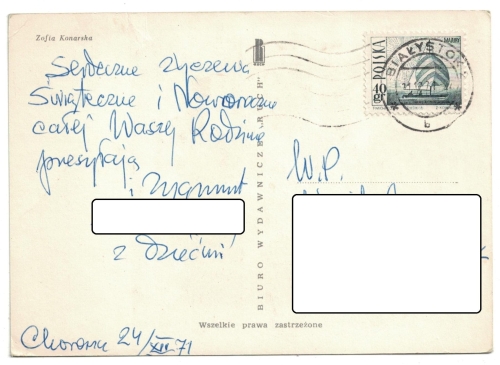 Zofia Konarska
Serdeczne życzenia
Świąteczne i Noworoczne
całej Waszej Rodzinie
przesyłają
i Zygmunt
z Dziećmi
Choroszcz 24/XII 71
BIURO WYDAWNICZE „RUCH"
Wszelkie prawa zastrzeżone
POLSKA
40 gr
BIAŁYSTOK
b
W.P.